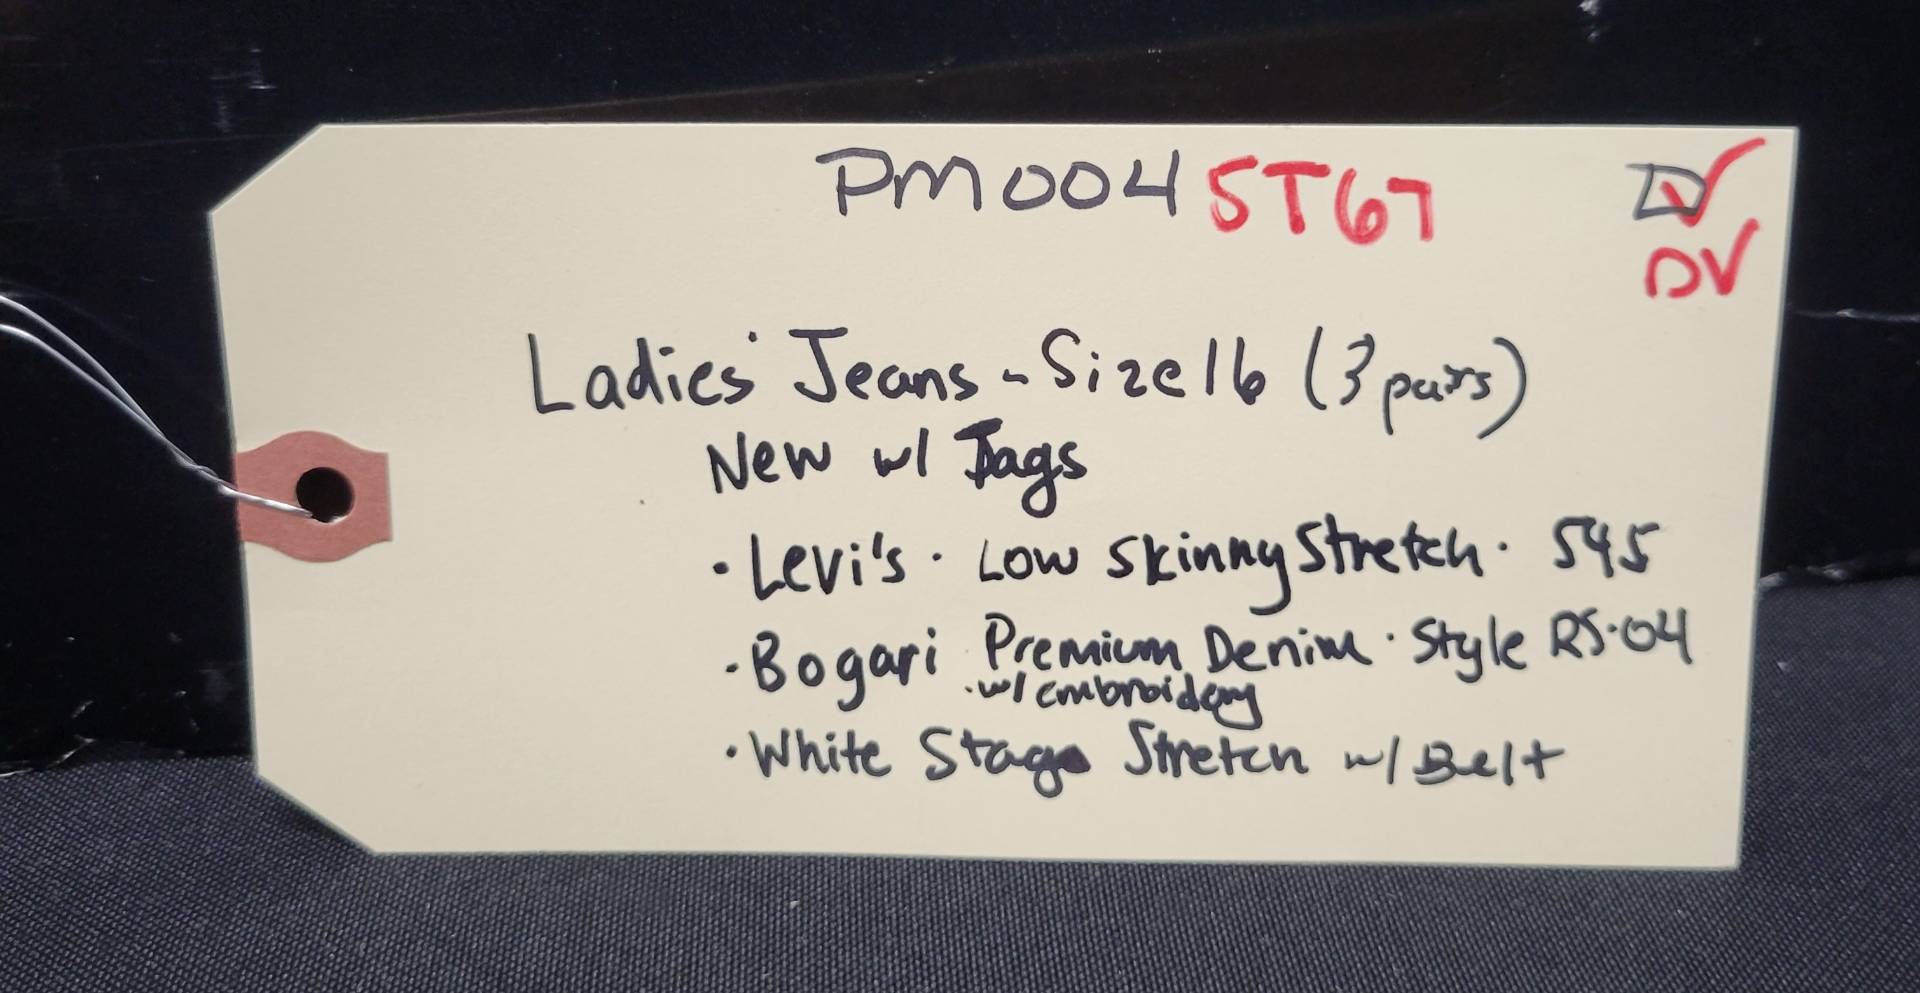 PM004 ST67 ☑
DV
Ladies' Jeans - Size 16 (3 pairs)
New w/ Tags
· Levi's · Low Skinny Stretch · 545
· Bogari Premium Denim · Style RS·04
· w/ embroidery
· White Stage Stretch w/ Belt